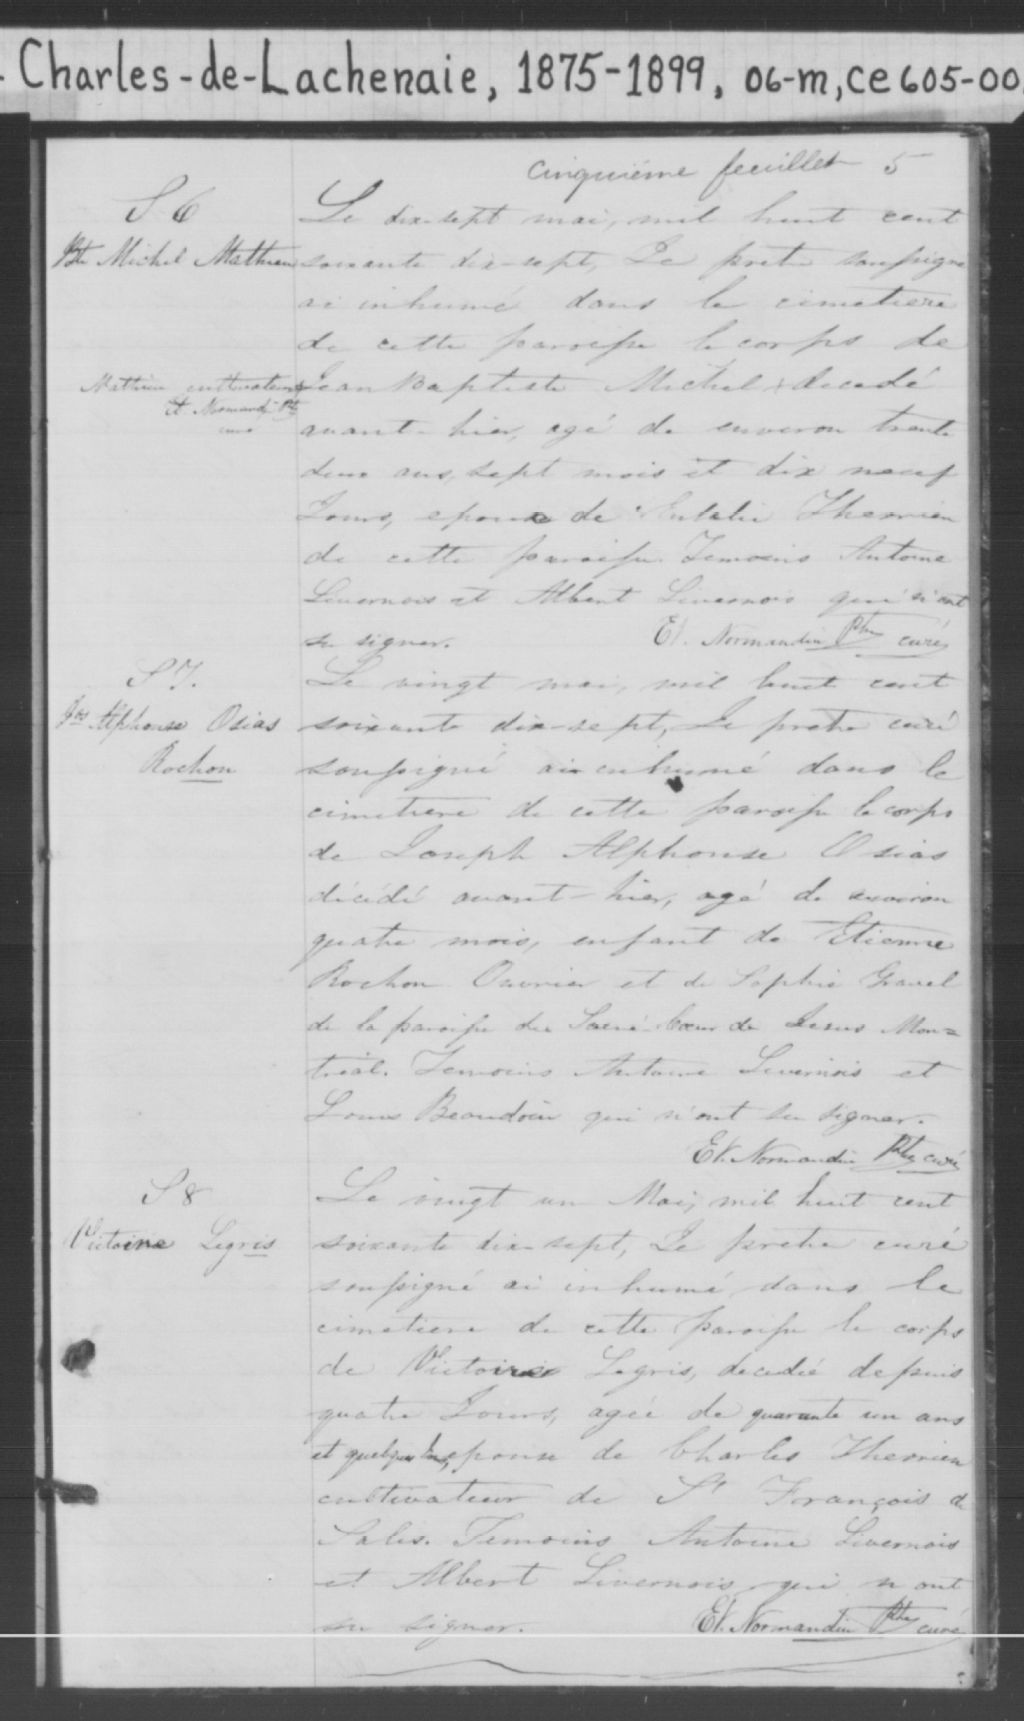 - Charles-de-Lachenaie, 1875-1899, 06-m, ce605-00
cinquième feuillet 5
S 6
Bte Michel Mathieu
Mathieu cultivateur
Et. Normandin Ptre
curé
Le dix-sept mai, mil huit cent
soixante dix-sept, Je pretre soussigné
ai inhumé dans le cimetiere
de cette paroisse le corps de
Jean Baptiste Michel x decedé
avant-hier, agé de environ trente
deux ans, sept mois et dix neuf
Jours, epoux de Eulalie Therrien
de cette paroisse. Temoins Antoine
Livernois et Albert Livernois qui n'ont
su signer. Et. Normandin Ptre curé
S 7.
Jos Alphonse Osias
Rochon
Le vingt mai, mil huit cent
soixante dix-sept, Je pretre curé
soussigné ai inhumé dans le
cimetiere de cette paroisse le corps
de Joseph Alphonse Osias
décédé avant-hier, agé de environ
quatre mois, enfant de Etienne
Rochon Ouvrier et de Sophie Gravel
de la paroisse du Sacré-Cœur de Jesus Mon=
tréal. Temoins Antoine Livernois et
Louis Beaudoin qui n'ont su signer.
Et. Normandin Ptre curé
S 8
Victoire Legris
Le vingt un Mai, mil huit cent
soixante dix-sept, Je pretre curé
soussigné ai inhumé dans le
cimetiere de cette paroisse le corps
de Victoire Legris, decedée depuis
quatre Jours, agée de quarante un ans
et quelques epouse de Charles Therrien
cultivateur de St François de
Sales. Temoins Antoine Livernois
et Albert Livernois qui n'ont
su signer. Et. Normandin Ptre curé